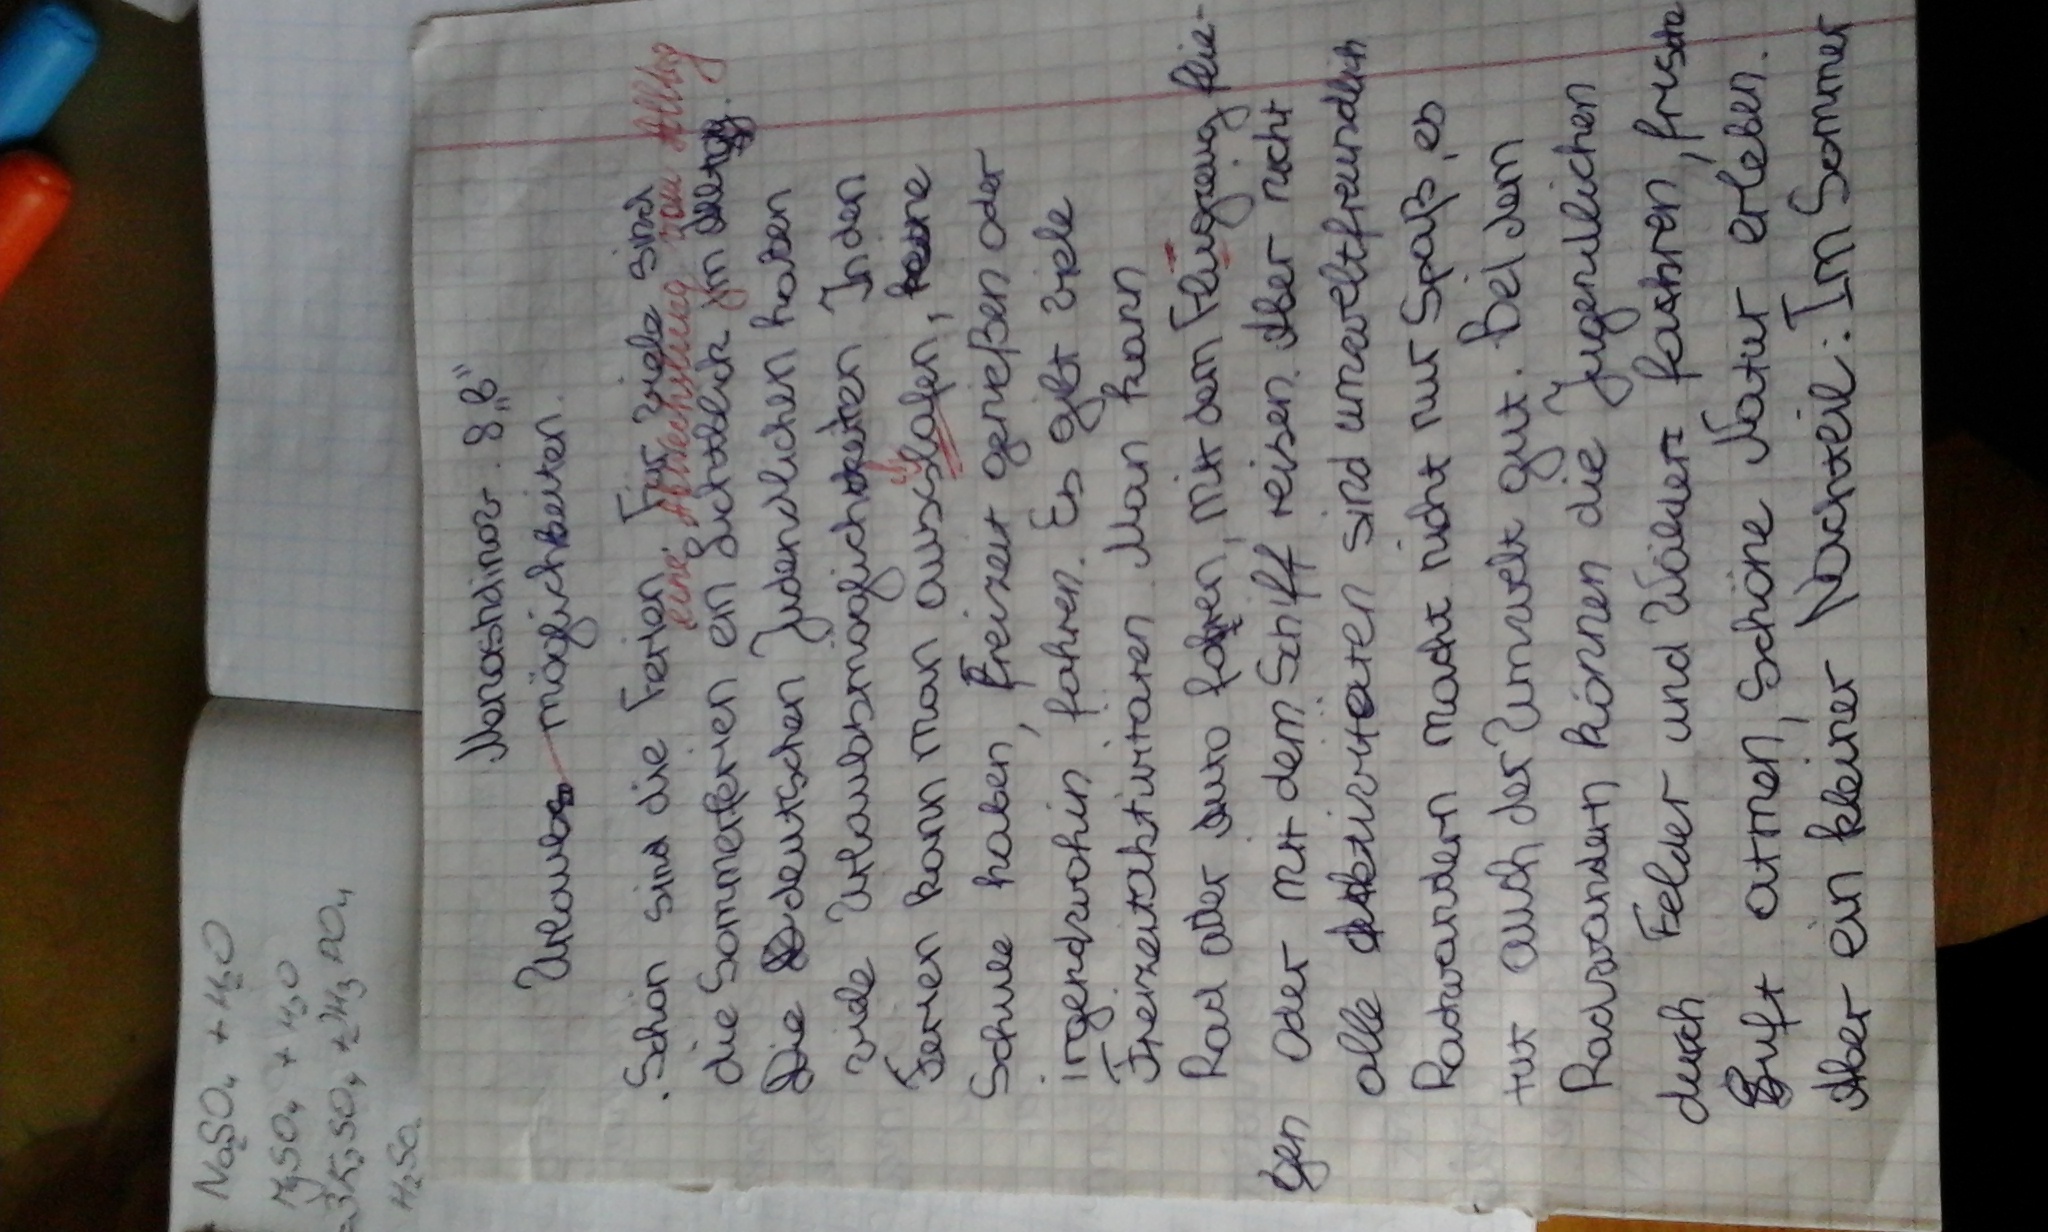 Na₂SO₄ + H₂O
H₂SO₄ + H₂O
3K₂SO₄ + 2H₃PO₄
H₂SO
8 „B"
Urlaubsmöglichkeiten.
Schön sind die Ferien. Für viele sind
eine Abwechslung vom Alltag
die Sommerferien ein Lichtblick im Alltag.
Die deutschen Judendlichen haben
viele Urlaubsmöglichkeiten In den
Ferien kann man ausschlafen, keine
Schule haben, Freizeit genießen oder
irgendwohin fahren. Es gibt viele
Freizeitaktivitäten Man kann
Rad oder Auto fahren, mit dem Flugzeug flie-
gen oder mit dem Schiff reisen. Aber nicht
alle Aktivitäten sind umweltfreundlich
Radwandern macht nicht nur Spaß, es
tut auch der Umwelt gut. Bei dem
Radwandern können die Jugendlichen
durch Felder und Wäldern fahren, frische
Luft atmen, schöne Natur erleben.
Aber ein kleiner Nachteil: Im Sommer